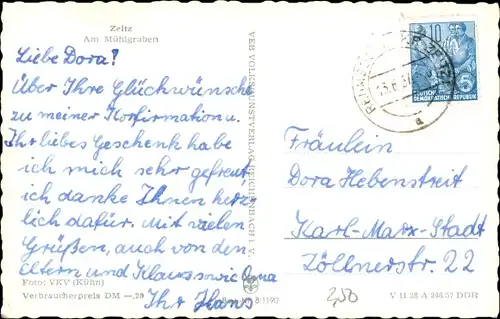 Zeitz
Am Mühlgraben
Liebe Dora!
Über Ihre Glückwünsche
zu meiner Konfirmation u.
Ihr liebes Geschenk habe
ich mich sehr gefreut,
ich danke Ihnen herz-
lich dafür. Mit vielen
Grüßen, auch von den
Eltern und Klaus sowie Oma
Ihr Hans
Foto: VKV (Kühn)
Verbraucherpreis DM -,20
VEB VOLKSKUNSTVERLAG REICHENBACH I. V.
10
DEUTSCHE
DEMOKRATISCHE REPUBLIK
Fräulein
Dora Hebenstreit
Karl-Marx-Stadt
Zöllnerstr. 22
250
V 11 28 A 246/57 DDR